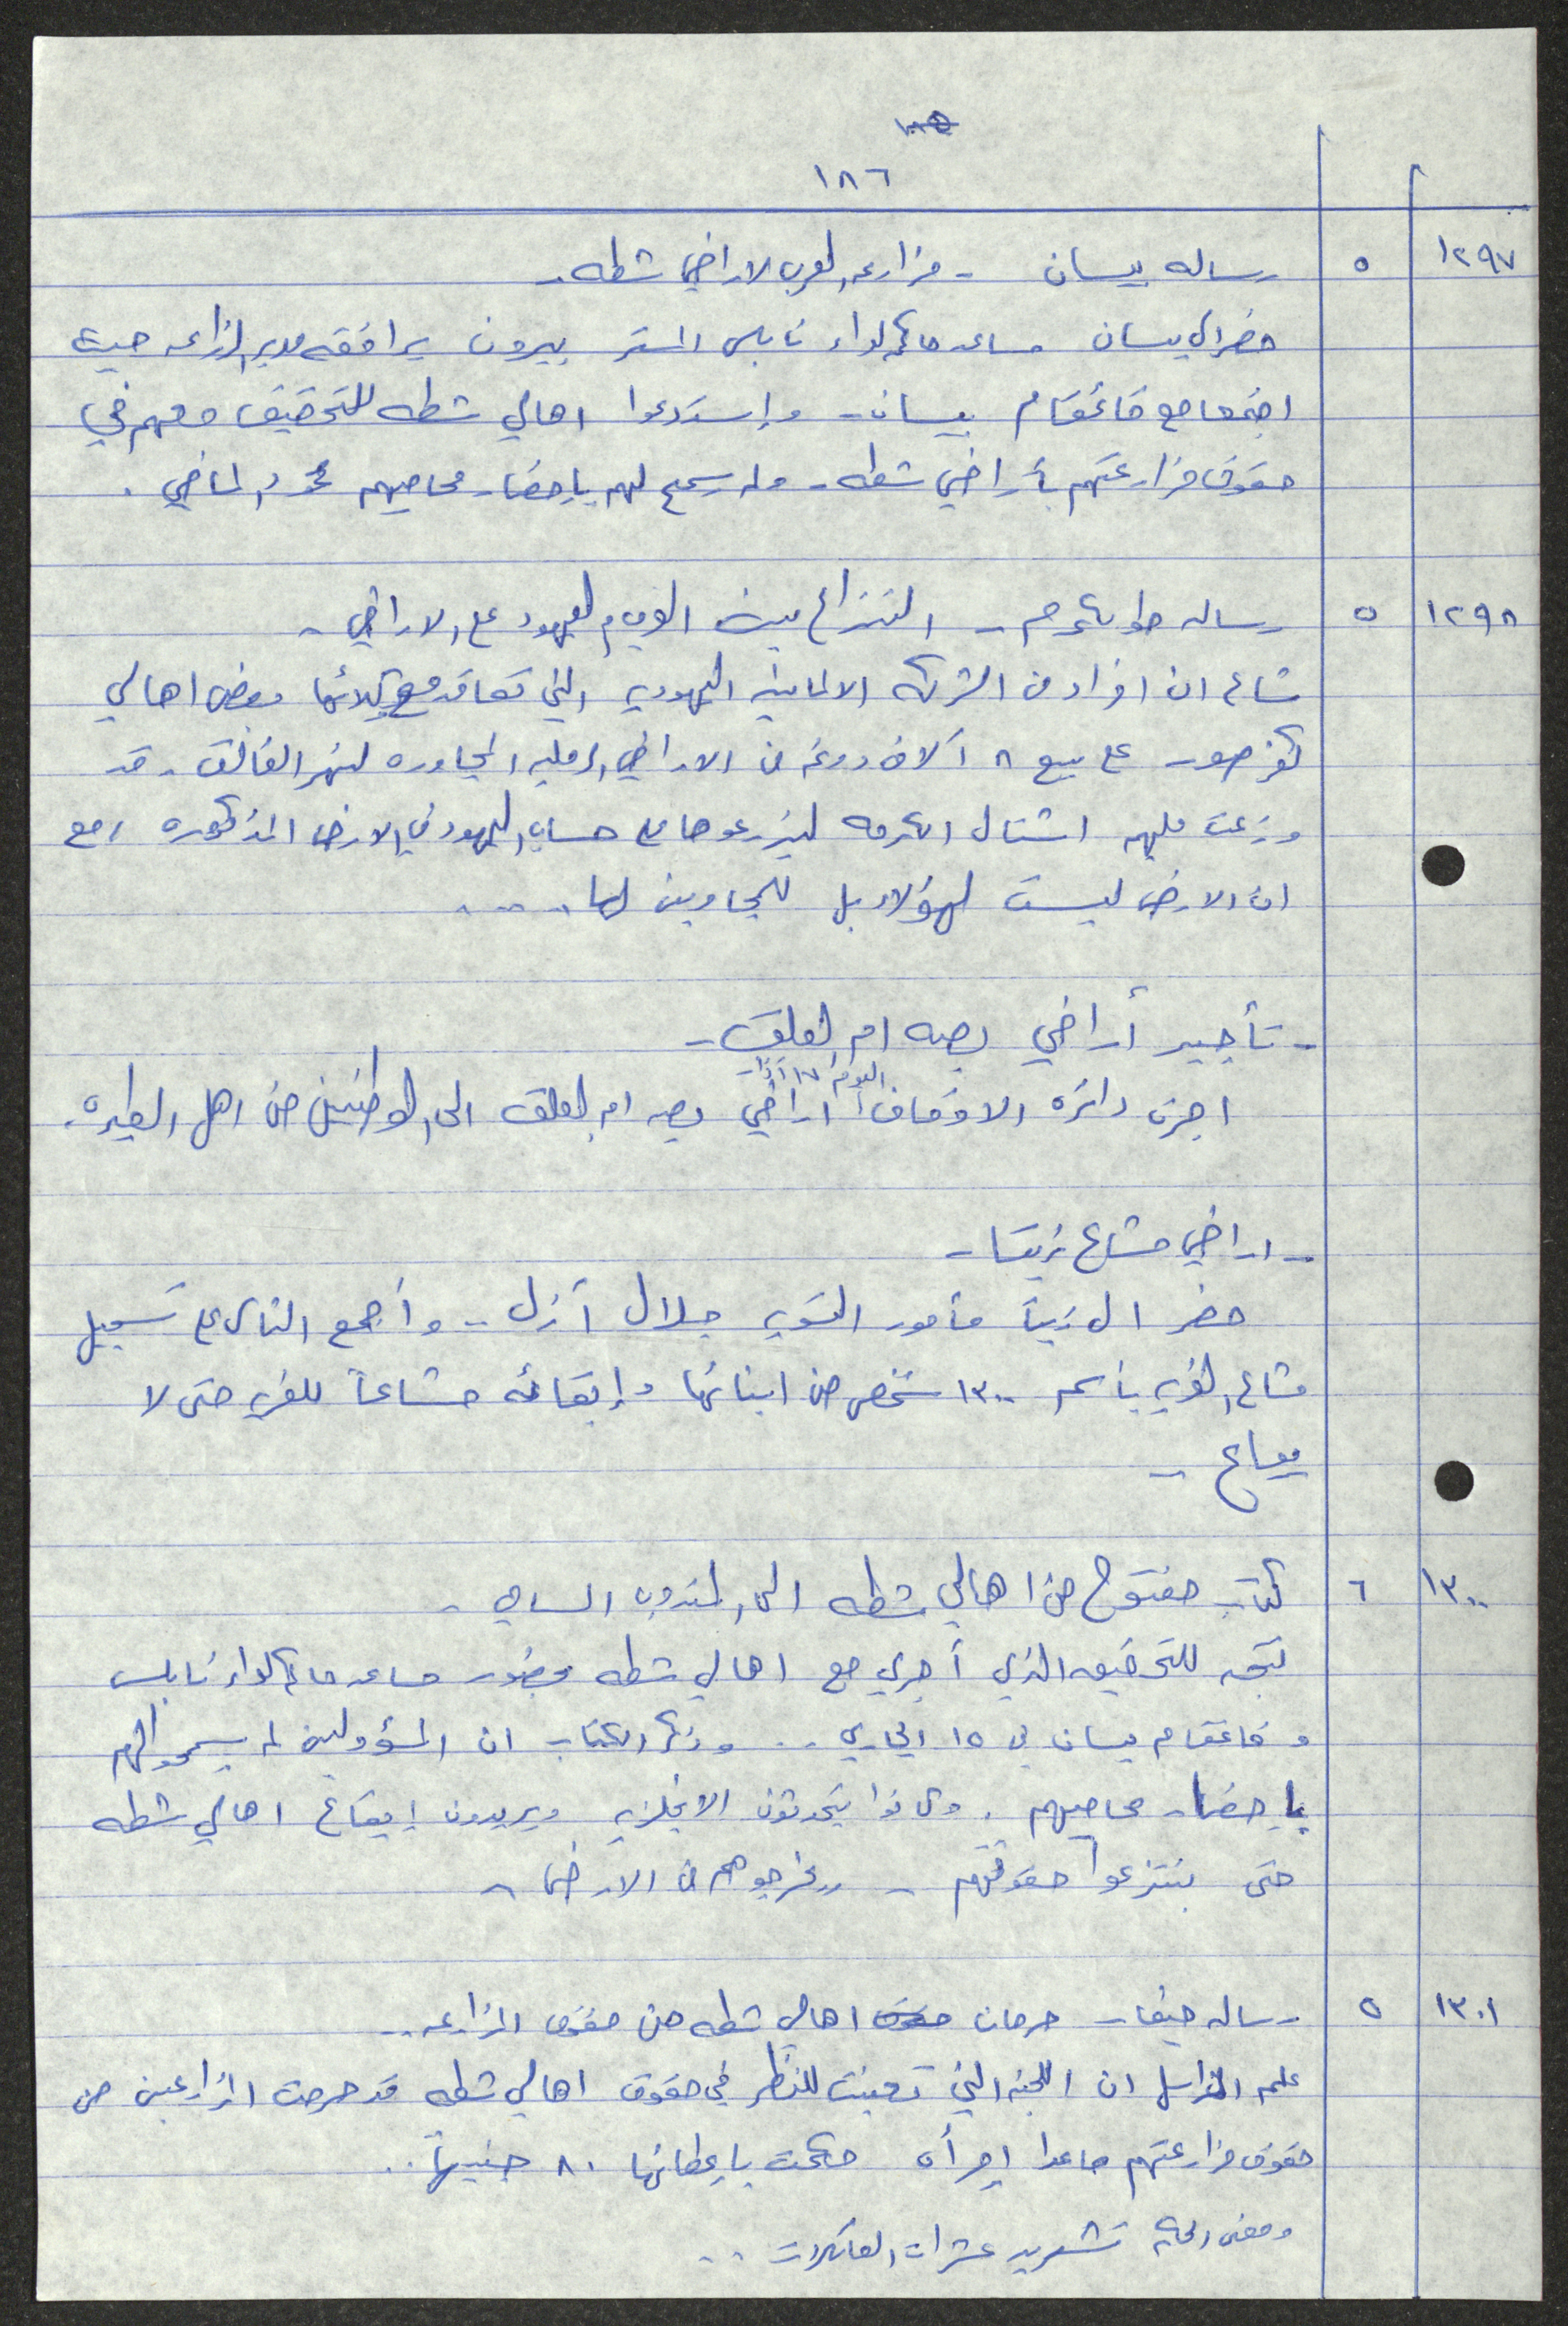 ١٨٦
١٢٩٧ ٥ رساله بيسان - مزارعه العرب لاراضي شطه -
حضر الى بيسان مساعد حاكم لواء نابلس المستر بيرون يرافقه مدير الزراعه حيث
اجتمعا مع قائمقام بيسان - وإستدعوا اهالي شطه للتحقيق معهم في
حقوق مزارعتهم بأراضي شطه - ولم يسمح لهم بإحضار محاميهم محمود الماضي .
١٢٩٨ ٥ رساله طولكرم - النزاع بين العرب واليهود على الاراضي -
شاع ان افراد من الشركه الالمانيه اليهوديه التي تعاقد مع وكلائها بعض اهالي
كفر صور على بيع ٨ آلاف دونم من الاراضي الرمليه المجاوره لنهر الفالق - قد
وزعت عليهم اشتال الكرمه ليزرعوها على حساب اليهود في الارض المذكوره ، مع
ان الارض ليست لهؤلاء بل للمجاورين لها ....
- تأجير أراضي بصه ام العلق -
اجرت دائرة الاوقاف اليوم ١٧ آذار اراضي بصه ام العلق الى الوطنيين من اهل الطيره .
- اراضي مشاع زيتا -
حضر الى زيتا مأمور التسويه جلال آزل - وأجمع الناس على تسجيل
مشاع القريه بأسم ١٣٠٠ شخص من ابنائها وإبقائه مشاعاً للقريه حتى لا
يباع -
١٣٠٠ ٦ كتاب مفتوح من اهالي شطه الى المندوب السامي -
نتيجه للتحقيق الذي أجري مع اهالي شطه بحضور مساعد حاكم لواء نابلس
وقائمقام بيسان في ١٥ الجاري .. وذكر الكتاب ان المسؤولين لم يسمحوا لهم
بإحضار محاميهم . وكانوا يتحدثون الانجليزيه ويريدون إيقاع اهالي شطه
حتى ينتزعوا حقوقهم - ويخرجوهم من الارض -
١٣٠١ ٥ رساله حيفا - حرمان اهالي شطه من حقوق المزارعه ..
علم المراسل ان اللجنه التي تعينت للنظر في حقوق اهالي شطه قد حرمت المزارعين من
حقوق مزارعتهم ماعدا إمرأه حكمت بإعطائها ٨٠ جنيهاً ..
ومعنى الحكم تشريد عشرات العائلات ..